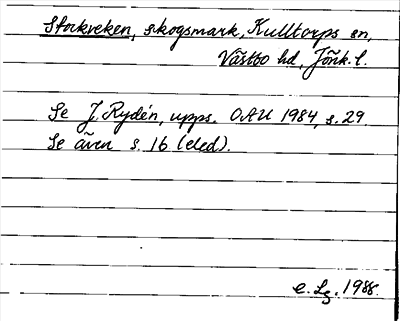 Storkseken, skogsmark, Kulltorps sn,
Västbo hd, Jönk. l.
Se J. Rydén, upps. OAU 1984, s. 29.
Se även s. 16 (eled).
e. Lg. 1988.